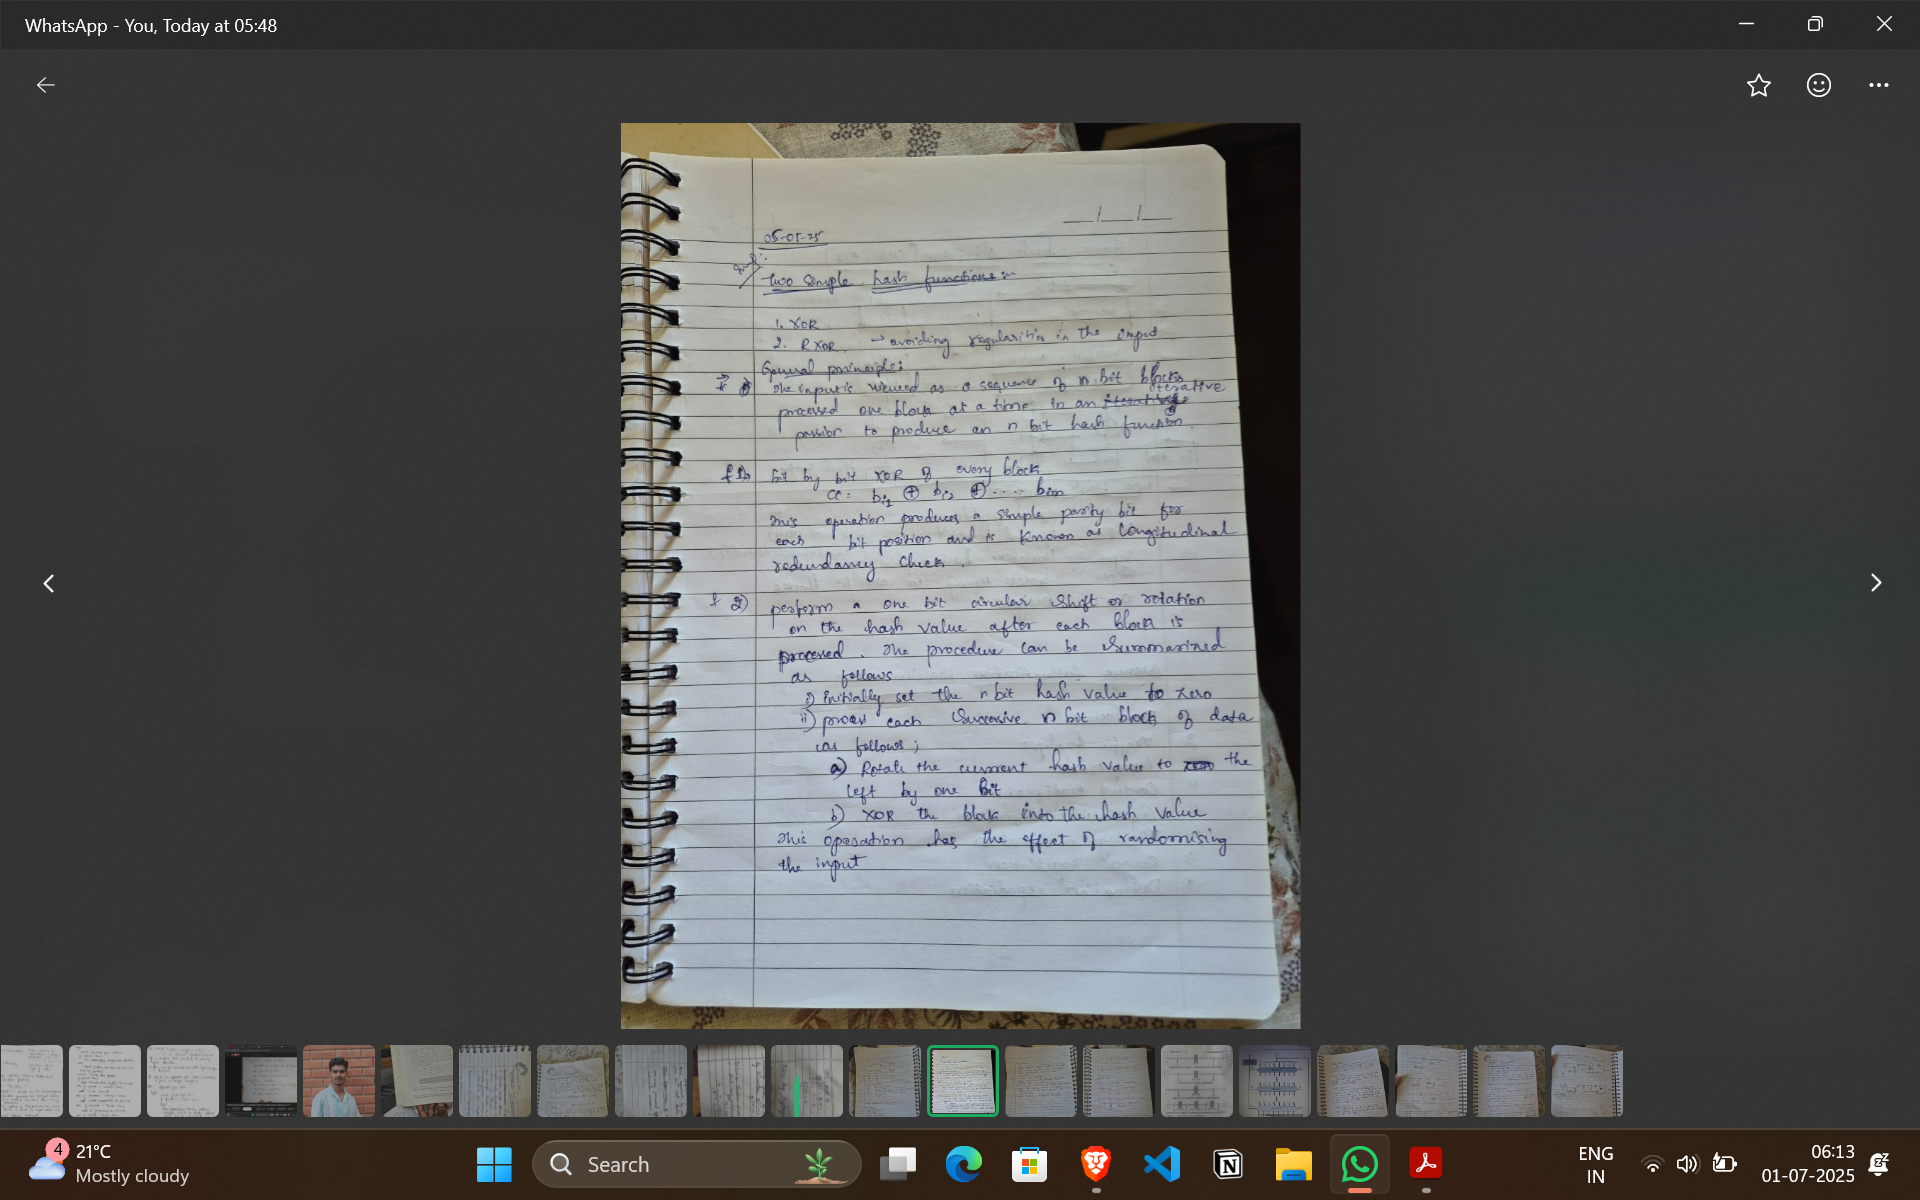 WhatsApp - You, Today at 05:48
__/__/__
05-05-25
Imp:
Two Simple hash functions :-
1. XOR
2. RXOR → avoiding regularities in the input
General principle:
The input is viewed as a sequence of n bit blocks
iterative
processed one block at a time in an
to produce an n bit hash function.
f 1) bit by bit XOR of every block
Ci = bi1 ⊕ bi2 ⊕ .... bim
This operation produces a simple parity bit for
each bit position and is known as Longitudinal
redundancy check.
f 2) perform a one bit circular shift or rotation
on the hash value after each block is
processed. The procedure can be summarized
as follows
i) Initially set the n bit hash value to zero
ii) process each Successive n bit block of data
as follows;
a) Rotate the current hash value to zero the
left by one Bit
b) XOR the block into the hash value
This operation has the effect of randomising
the input
4
21°C
Mostly cloudy
Search
ENG
IN
06:13
01-07-2025